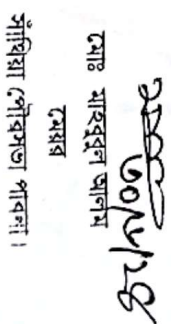 ৩০/৮/২৪
মোঃ মাহবুবুল আলম
মেয়র
সাঁথিয়া পৌরসভা পাবনা।